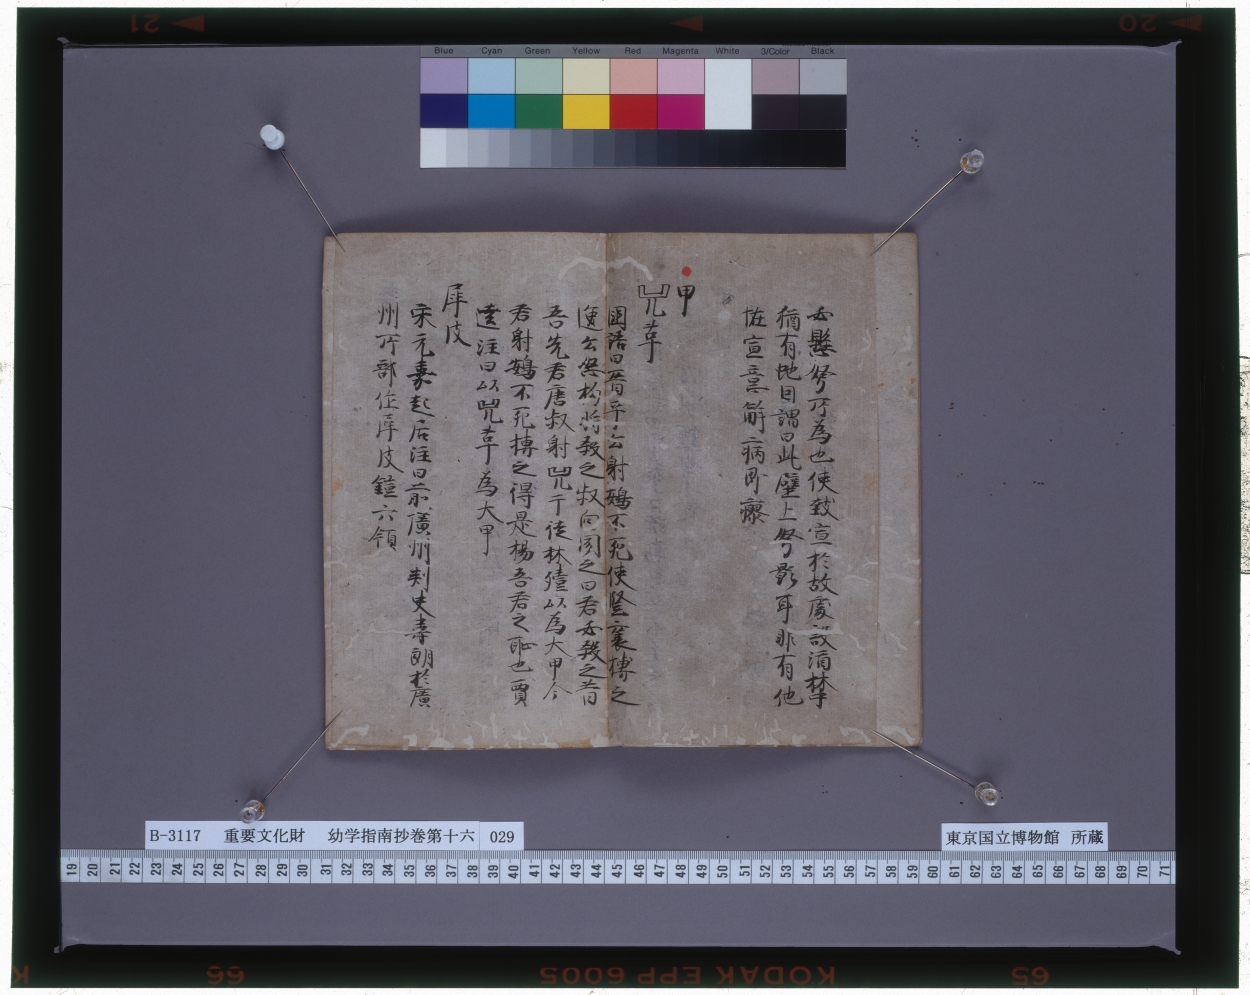 Blue Cyan Green Yellow Red Magenta White 3/Color Black
必懸弩所為也使鼓宣於故處設酒杯
猶有地因謂曰此壁上弩影耳非有他
恠宣意解病即瘳
甲
兕革
國語曰晋平公射鴳不死使竪襄搏之
公怒拘将殺之叔向聞之曰君必殺之昔
吾先君唐叔射兕于徒林殪以為大甲今
君射鴳不死搏之不得是揚吾君之耻也賈
逵注曰以兕革為大甲
犀皮
宋元嘉起居注曰前廣州刺史韋朗於廣
州所部作犀皮鎧六領
B-3117 重要文化財 幼学指南抄巻第十六 029
東京国立博物館 所蔵
19 20 21 22 23 24 25 26 27 28 29 30 31 32 33 34 35 36 37 38 39 40 41 42 43 44 45 46 47 48 49 50 51 52 53 54 55 56 57 58 59 60 61 62 63 64 65 66 67 68 69 70 71
KODAK EPP 6005